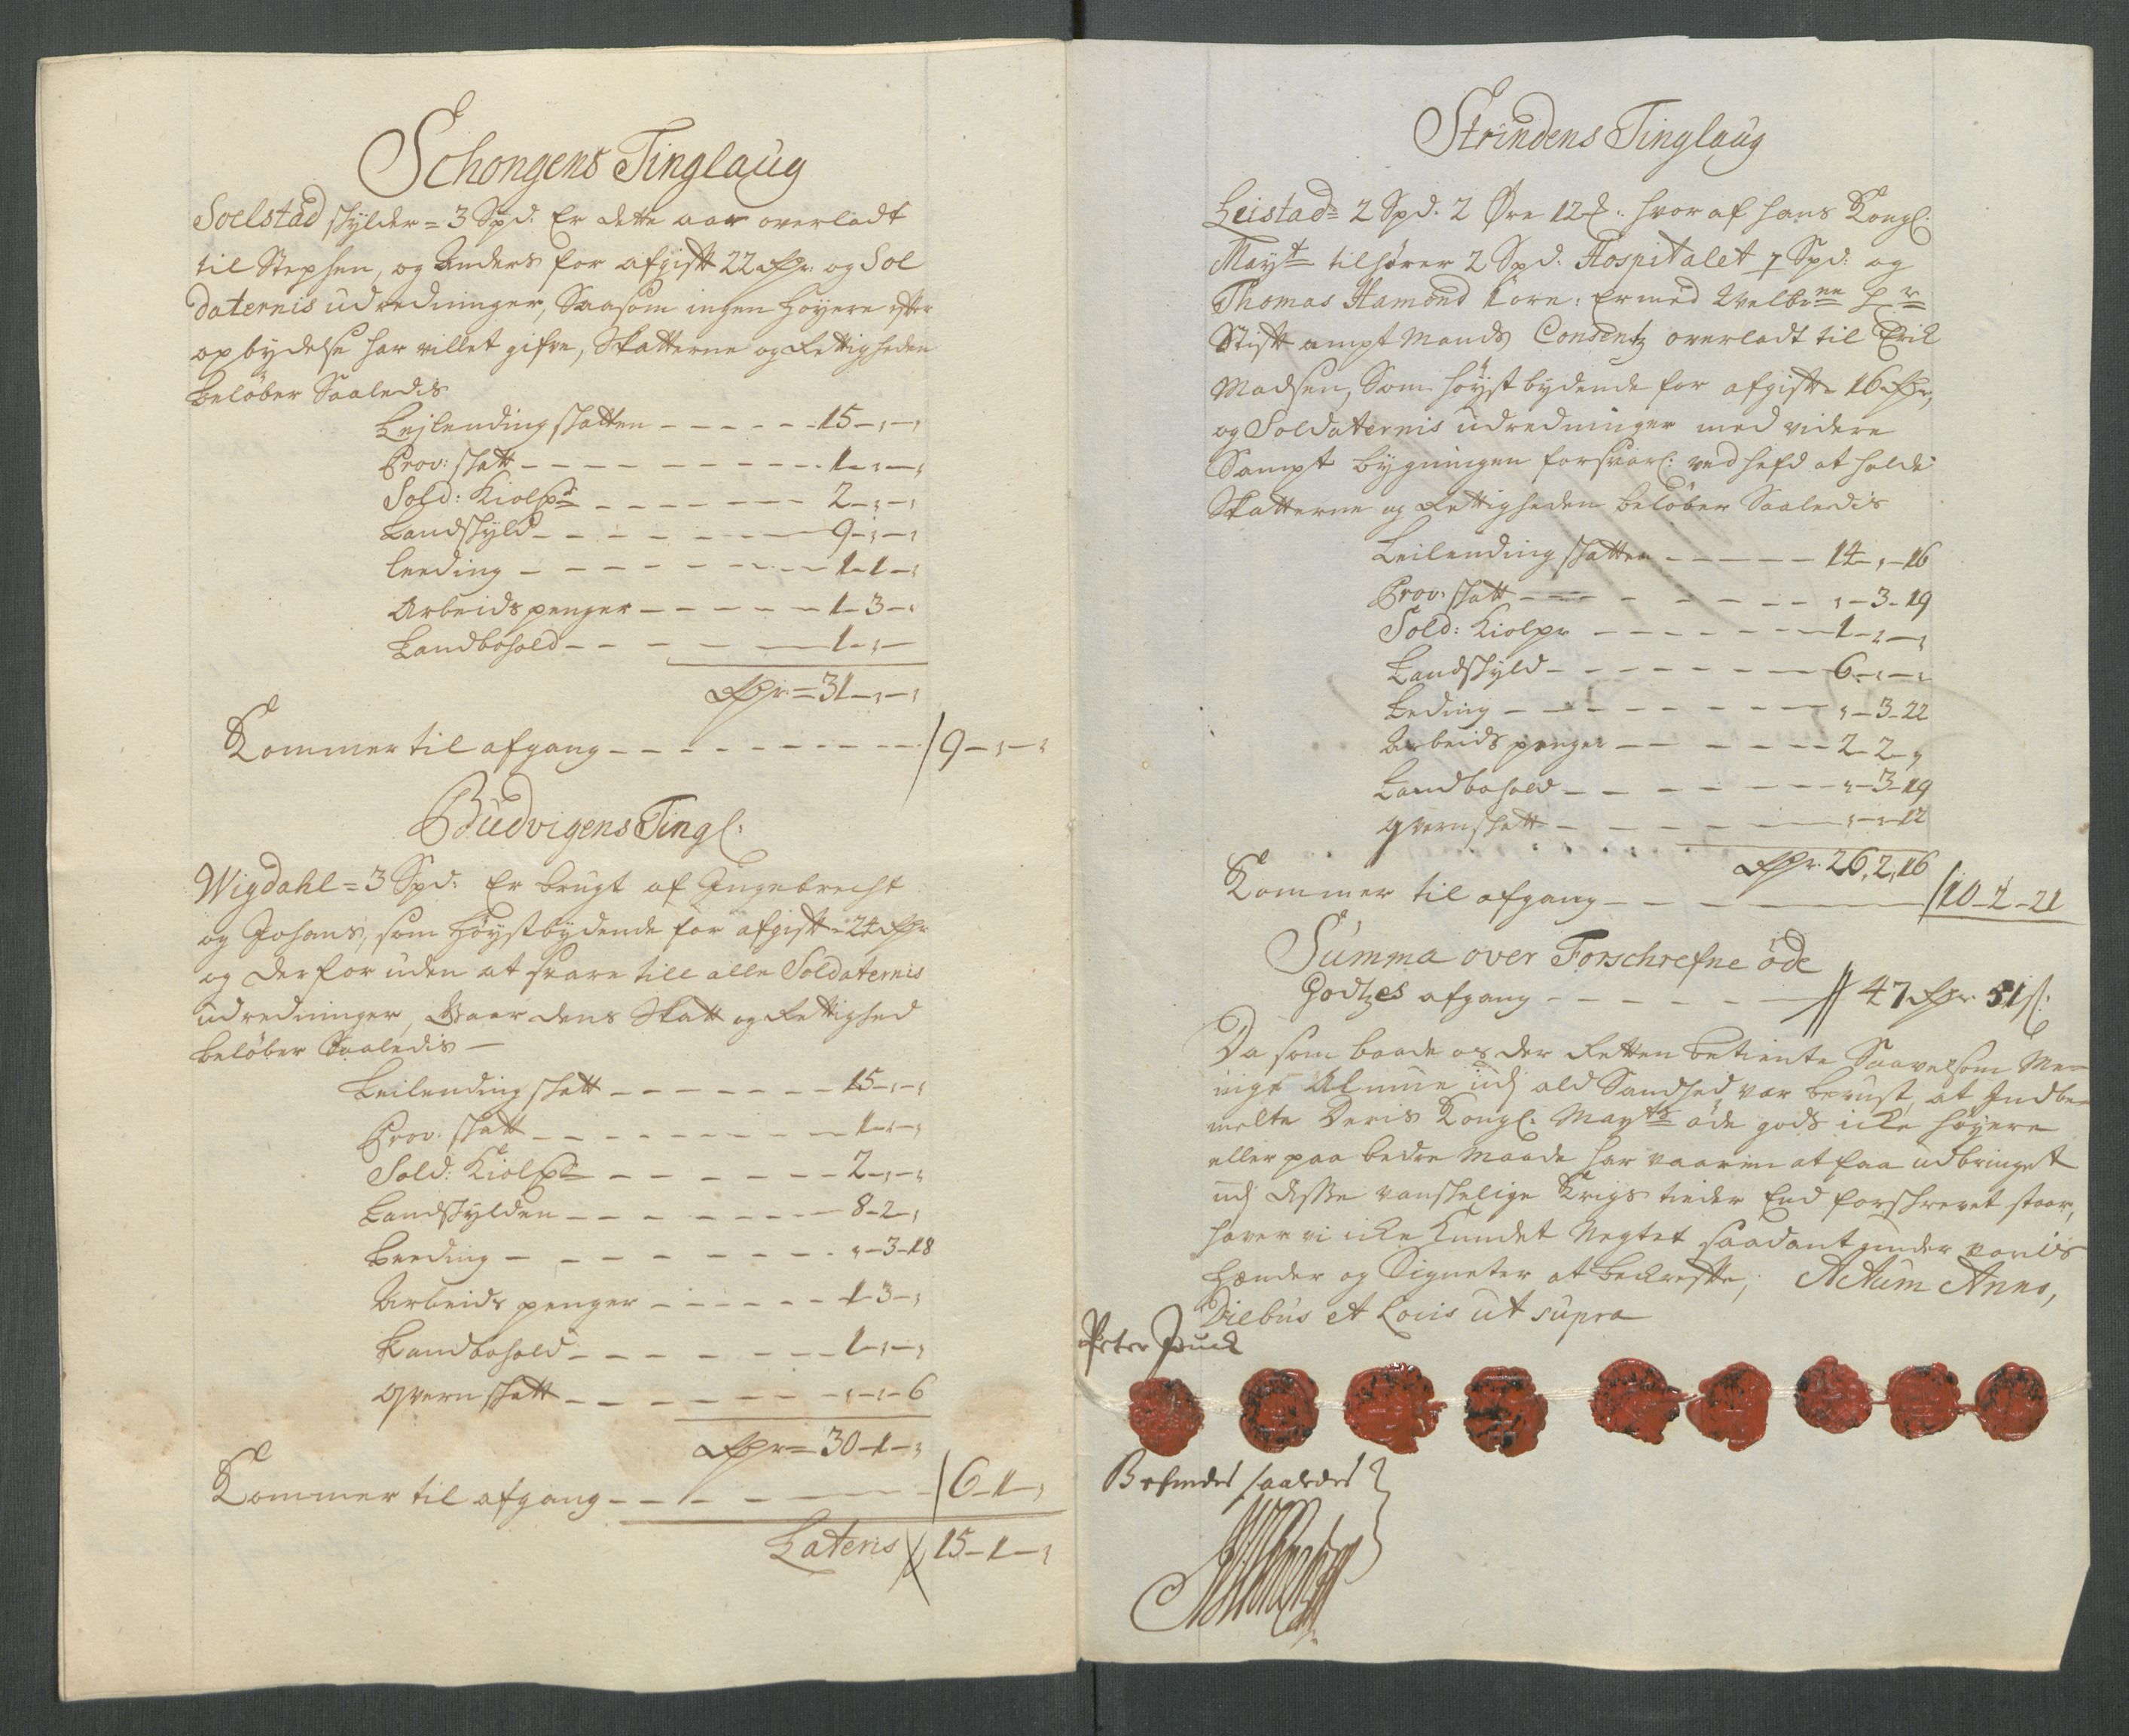 Schongens Tinglaug
Soelstad skylder = 3 Spd. Er dette aar overladt
til Stephen, og Anders for afgift 22 rdr. og Sol
daternis udredninger, Saasom ingen høyere efter
opbydelse har villet gifve, Skatterne og Rettigheden
beløber Saaledis
Lejlending skatten - - - - - - 15 - " - "
Prov: skatt - - - - - - - - - 1 - " - "
Sold: Kiolp - - - - - - - 2 - " - "
Landskyld - - - - - - - 9 - " - "
Leeding - - - - - - - - 1 - 1 - "
Arbeids penger - - - - - 1 - 3 - "
Landbohold - - - - - 1 - " -
rdr = 31 - " - "
Kommer til afgang - - - - - - - - - - / 9 - " - "
Budvigens Tingl:
Wigdahl = 3 Spd: Er brugt af Ingebrecht
og Johans, som høystbydende for afgift - 24 rdr
og derfor uden at svare till alle Soldaternis
udredninger, Gaardens Skatt og Rettighed
beløber Saaledis -
Leilending skatt - - - - - - - 15 - " - "
Prov. skatt - - - - - - - - - 1 - " - "
Sold: Kiolp - - - - - - - 2 - " - "
Landskylden - - - - - - - 8 - 2 - "
Leeding - - - - - - - - - " - 3 - 18
Arbeids penger - - - - - - 1 - 3 - "
Landbohold - - - - - - - 1 - " - "
Qvern skatt - - - - - - - " - " - 6
rdr = 30 - 1 - "
Kommer til afgang - - - - - / 6 - 1 - "
Lateris 15 - 1 - "
Strindens Tinglaug
Leistad = 2 Spd. 2 Øre 12 hvor af hans Kongl:
Mayt tilhører 2 Spd. Hospitalet Spd: og
Thomas Hamond Korn: Er med Velbne Hr
Stift ampt Mands Consentz overladt til Erik
Madsen, Som høyst bydende for afgift - 16 rdr,
og Soldaternis udredninger med videre
Sampt bygningen forsvarl: ved hefd at holde
Skatterne og Rettigheden beløber Saaledis
Leilending skatten - - - - - 14 - " - 16
Prov. skatt - - - - - - - " - 3 - 19
Sold: Kiolpr - - - - - - 1 - " - "
Landskyld - - - - - - - 6 - " - "
Leding - - - - - - - - " - 3 - 22
Arbeids penger - - - - - 2 - 2 - "
Landbohold - - - - - - - " - 3 - 19
Qvernskatt - - - - - - " - " - 12
rdr. 26, 2, 16
Kommer til afgang - - - - - / 10 - 2 - 21
Summa over Forschrefne öde
Godtzes afgang - - - - - - // 47 rdr 51 s:
Da som baade os der Retten betiente Saavelsom Me-
nige Almue udj ald Sandhed var bevust, at Indbe-
melte Deris Kongl: Mayts öde gods icke høyere
eller paa bedre Maade har vaaren at faa udbringet
udj disse vanskelige Krigs tieder End forskrevet staar,
haver vi icke Kundet Negtet saadant under voris
Hænder og Signeter at bekrefte, Actum Anno,
Diebus et Locis ut supra
Peter Juul
Befindes saaledes